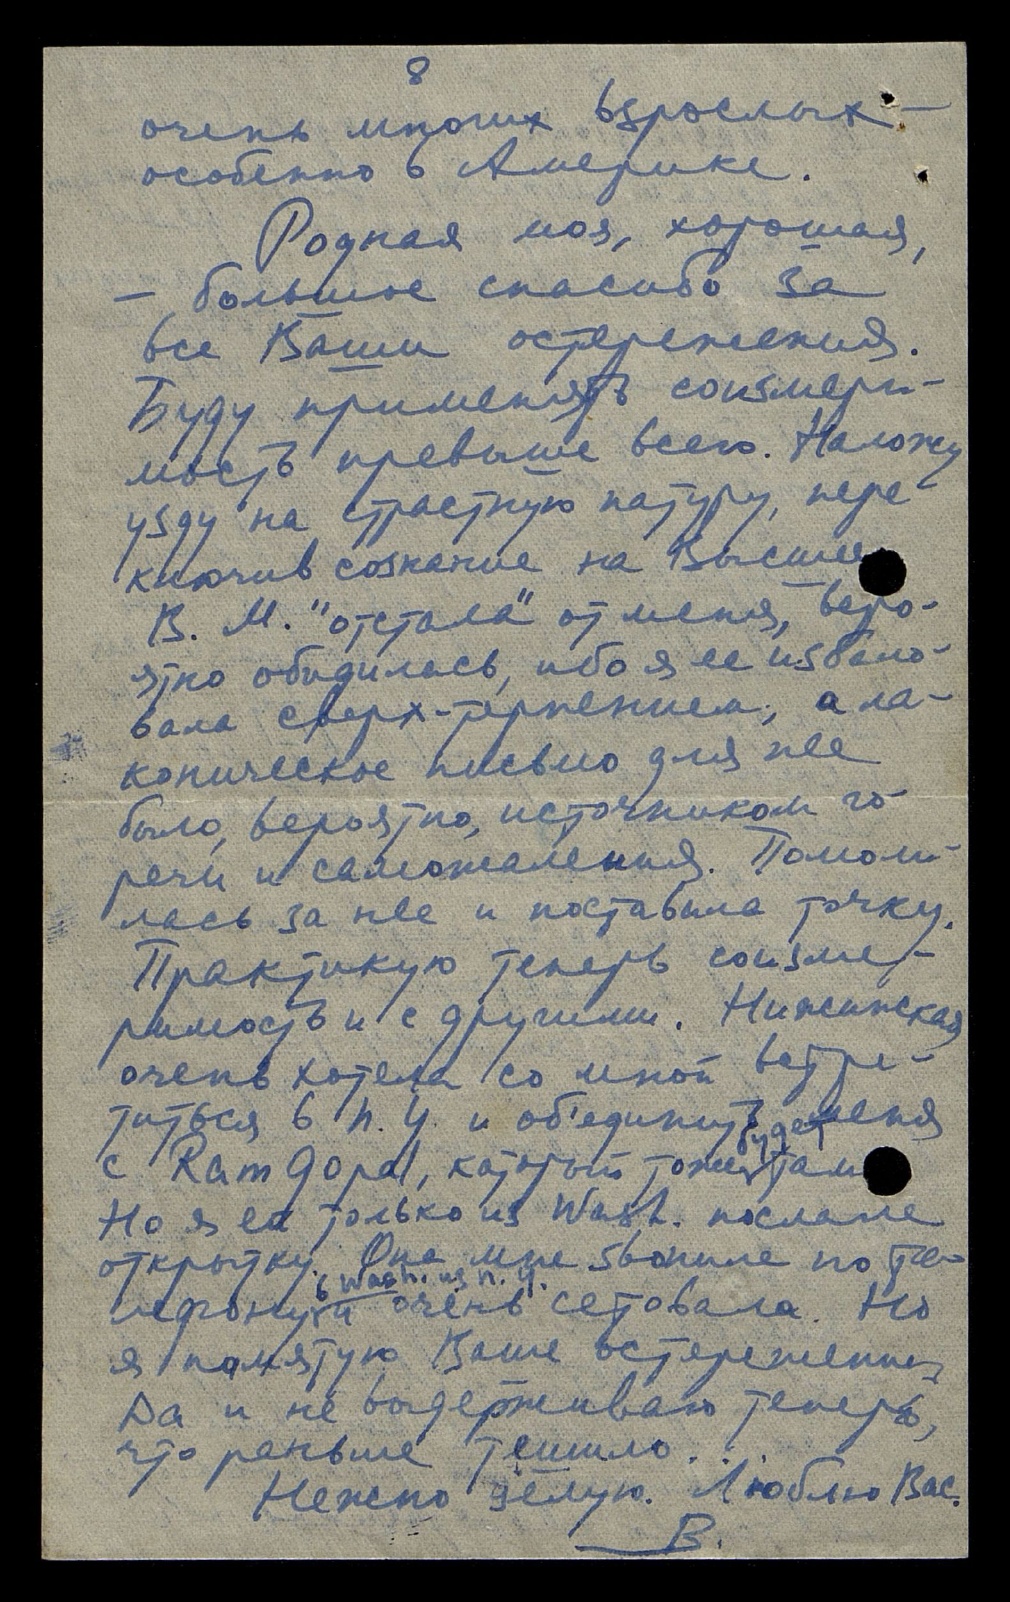 8
очень многих взрослых –
особенно в Америке.
Родная моя, хорошая,
– большое спасибо за
все Ваши остережения.
Буду применять соизмери-
мость превыше всего. Наложу
узду на страстную натуру, пере-
ключив сознание на Высшее.
В. М. "отстала" от меня, веро-
ятно обиделась, ибо я ее избало-
вала сверх-терпением, а ла-
коническое письмо для нее
было, вероятно, источником го-
речи и саможаления. Помоли-
лась за нее и поставила точку.
Практикую теперь соизме-
римость и с другими. Нижинская
очень хотела со мной встре-
титься в N. Y. и об'единить меня
с Ram Gopal, который тоже будет там
Но я ей только из Wash. послала
открытку. Она мне звонила по те-
лефону в Wash. из N. Y. и очень сетовала. Но
я памятую Ваше остережение,
Да и не выдерживаю теперь,
что раньше тешило...
Нежно целую. Люблю Вас.
В.